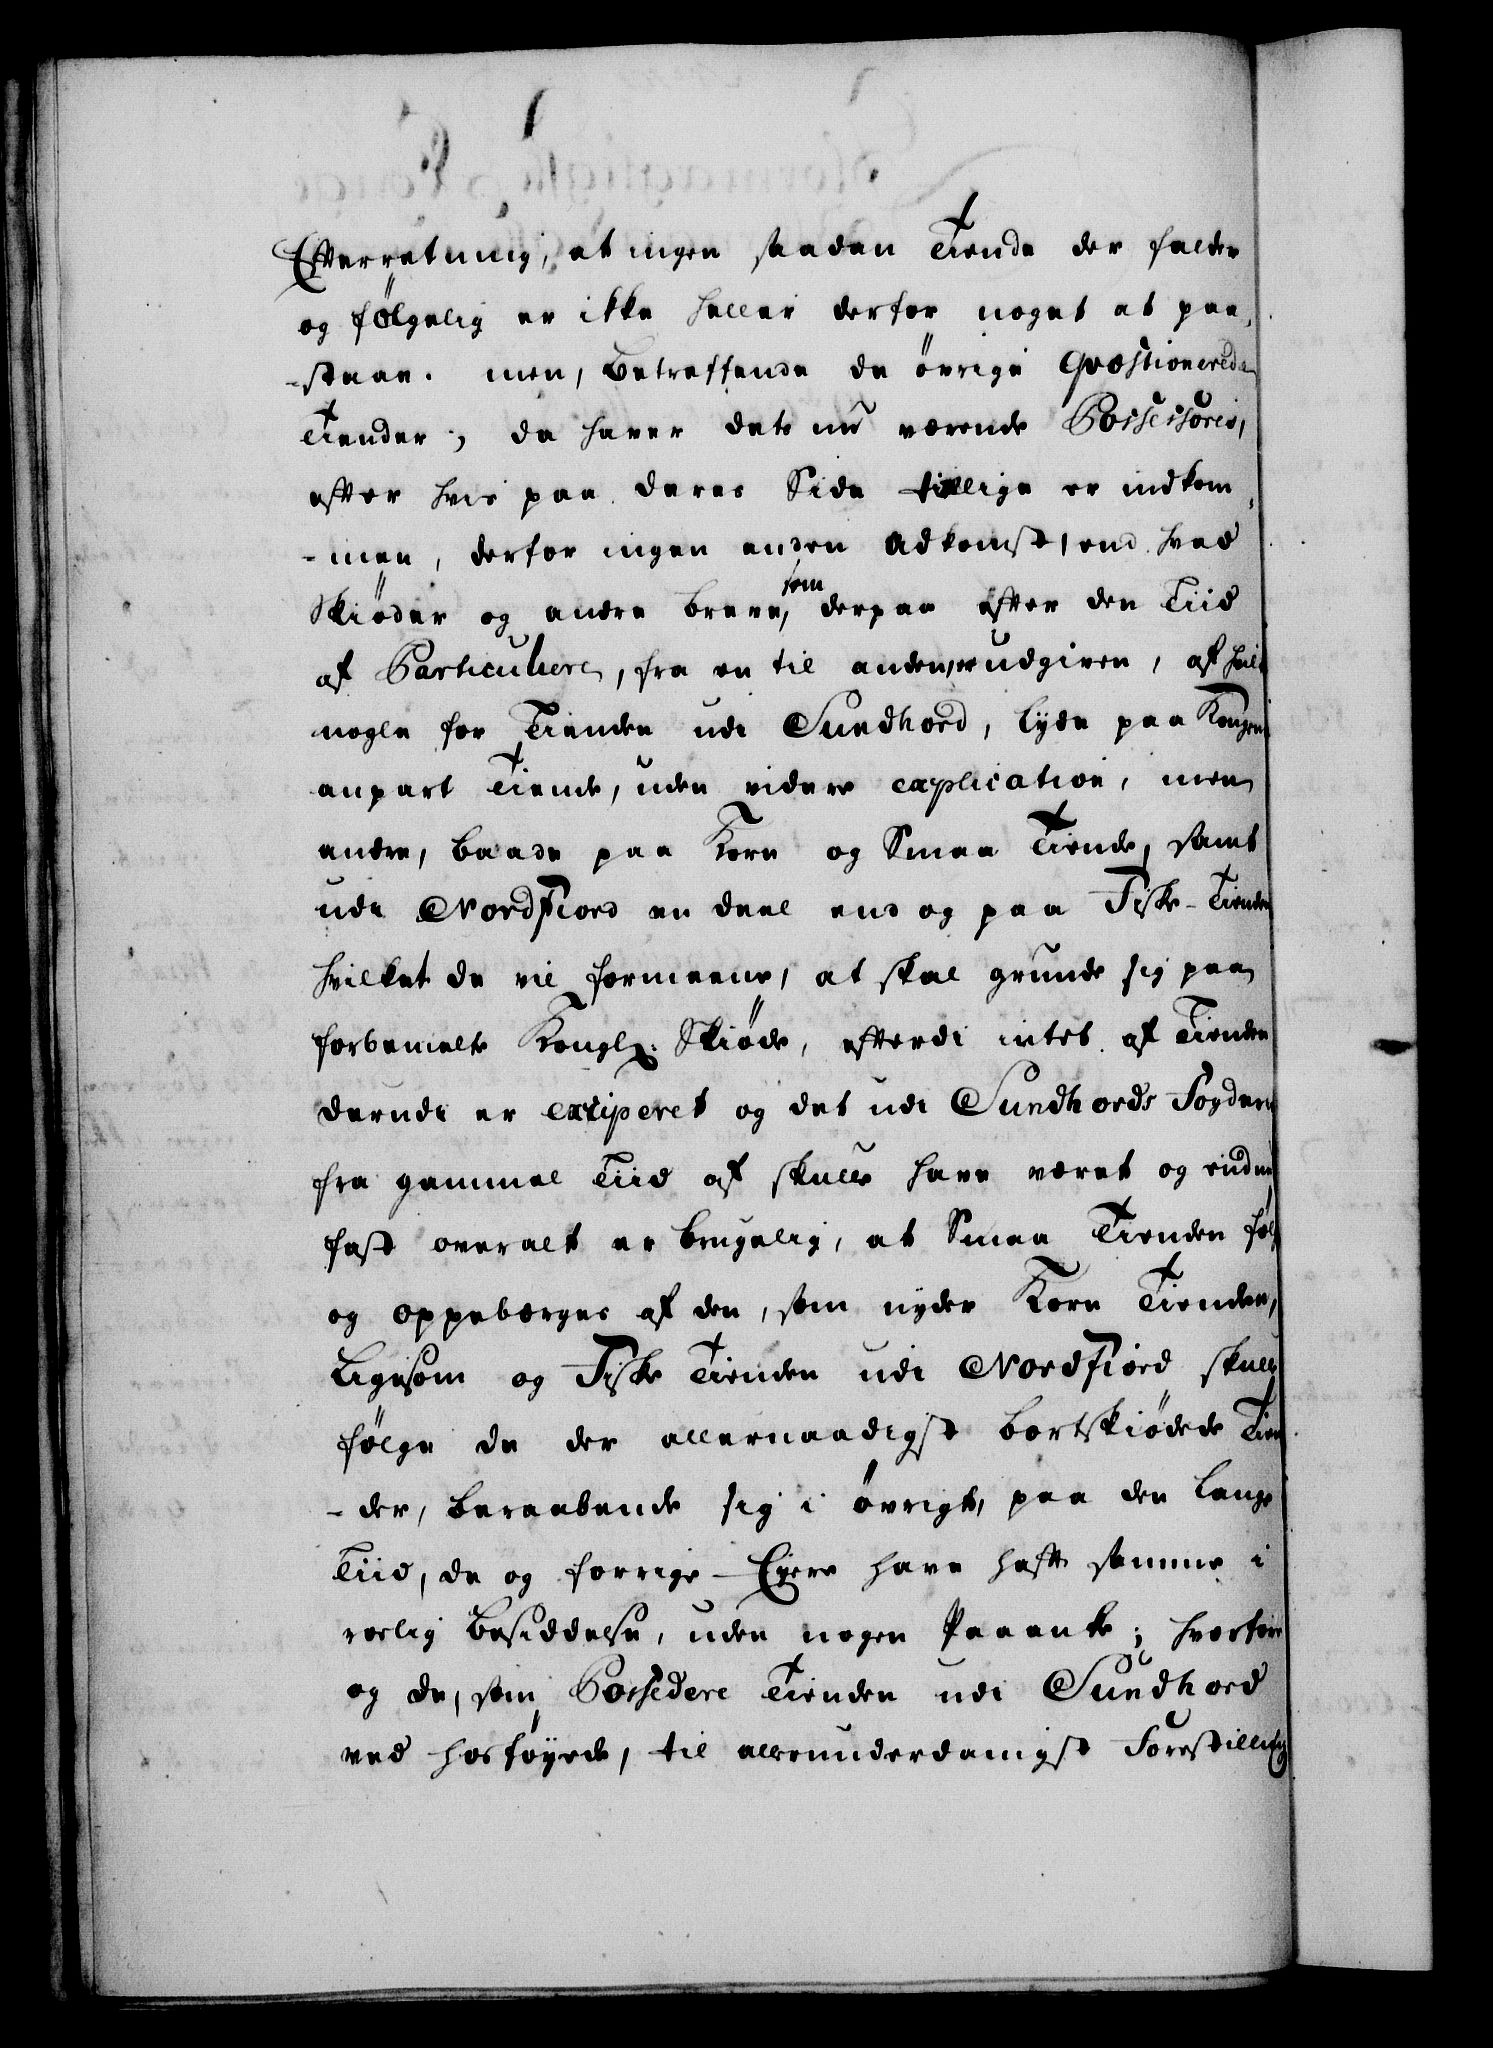 Efterretning, at ingen saadan Tiende der falder
og følgelig er ikke heller derfor noget at paa-
-staae. men, betreffende de øvrige Qvæstionerede
Tiender; da haver dets nu værende Possessores,
efter hvis paa deres Side tillige er indkom-
-men, derfor ingen anden Adkomst, end hvad
Skiøder og andre breve, som derpaa efter den Tiid
af Particuliere, fra en til anden, er udgiven, af hvilke
nogle for Tienden udi Sundhord, lyde paa Kongens
anpart Tiende, uden videre explication, men
andre, baade paa Korn og Smaa Tiende, samt
udi Nordfiord en deel end og paa Fiske-Tienden
hvilket de vil formeene, at skal grunde sig paa
forbemelte Kongl. Skiøde, efterdi intet af Tienden
derudi er exciperet og det udi Sundhords Fogderi
fra gammel Tiid af skulle have været og endnu
fast overalt er brugelig, at Smaa Tienden følge
og oppebærges af den, som nyder Korn Tienden,
Ligesom og Fiske Tienden udi Nordfiord skulle
følge de der allernaadigst bortskiødede Tien-
-der, beraabende sig i øvrigt, paa den lange
Tiid, de og forrige Eyere have haft samme i
roelig Besiddelse, uden nogen Paaanke; hvorfore
og de, som Possedere Tienden udi Sundhord
ved hosføyede, til allerunderdanigst Forestilling